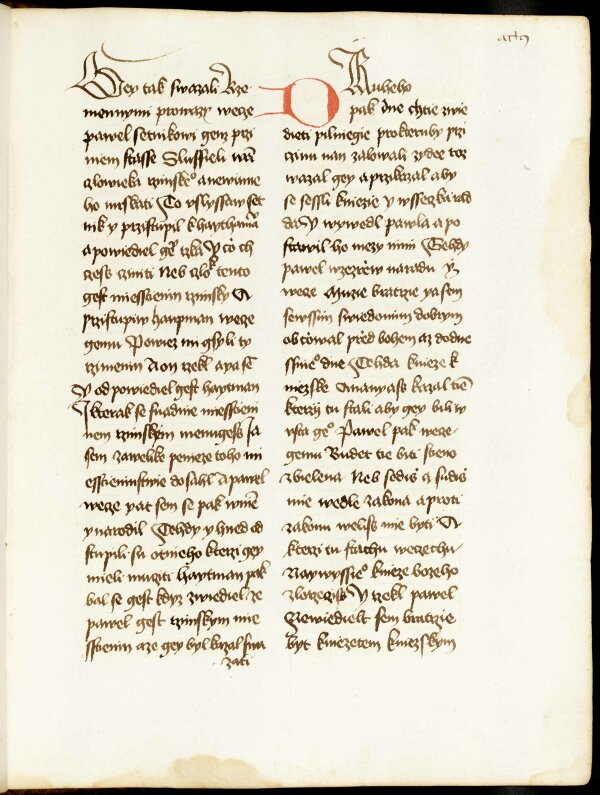 actꝯ
Gey tak swazali Rze
mennymi prowazy wece
pawel setnikowi gen przi
niem stasse Slussieli wam
czlowieka rzimskeho a newinne
ho mrskati To vslyssaw set
nik y przistupil k haythmanu
a powiediel gemu rzka Y czo ch
czess cziniti Neb czlowek tento
gest miesstienin rzimsky A
przistupiw hauptman wece
gemu Powiez mi gsy li ty
rzimenin A on rzekl a ya sem
Y od powiediel gest haytman
J kterak se snadnie miesstieni
nem rzimskym menugess Ja
sem zawelike penieze toho mi
esstieninstwie dosahl A pawel
wece ya t sem se pak w niem
y narodil Tehdy y hned od
stupili su otnieho kterzi gey
mieli mucziti haytman pak
bal se gest kdyz zwiediel ze
pawel gest rzimskym mie
sstienin a ze gey byl kazal swa
zati
DRuheho
pak dne chtie zwie
dieti pilniegie pro kteruby przi
czinu nan zalowali zydee roz
wazal gey a przikazal aby
se sessli kniezie y wsseczka rad
da Y wywedl pawla a po
stawil ho mezy nimi Tehdy
pawel wezrew na radu y
wece Muzie bratrzie ya sem
sewssim swiedomim dobrym
obczowal pred bohem az do dne
ssnieho dne Tehda knieze k
niezske Ananyass kazal tiem
kterzy tu stali aby gey bili w
vsta geho Pawel pak wece
gemu Budet tie biti stieno
zbielena Neb sedis a sudis
mie wedle zakona a proti
zakonu weliss mie byti A
kterzi tu stachu wecechu
Naywyssieho knieze bozeho
zlorzeczis Y rzekl pawel
Newiedielt sem bratrzie
byt kniezetem kniezskym